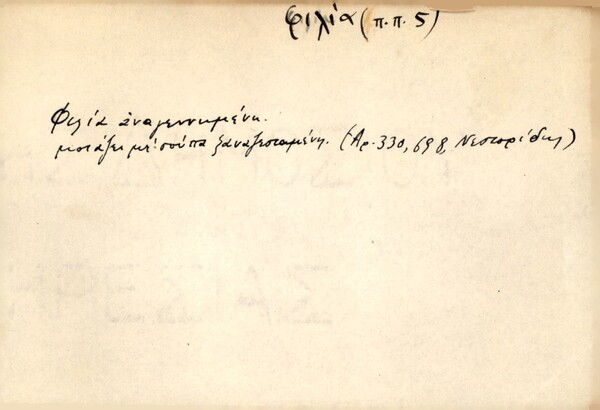 φιλία (π.π. 5)
Φιλία ἀναγεννημένη.
μοιάζει μὲ σούπα ξαναζεσταμένη. (Ἀρ. 330, 698, Νεστορίδης)